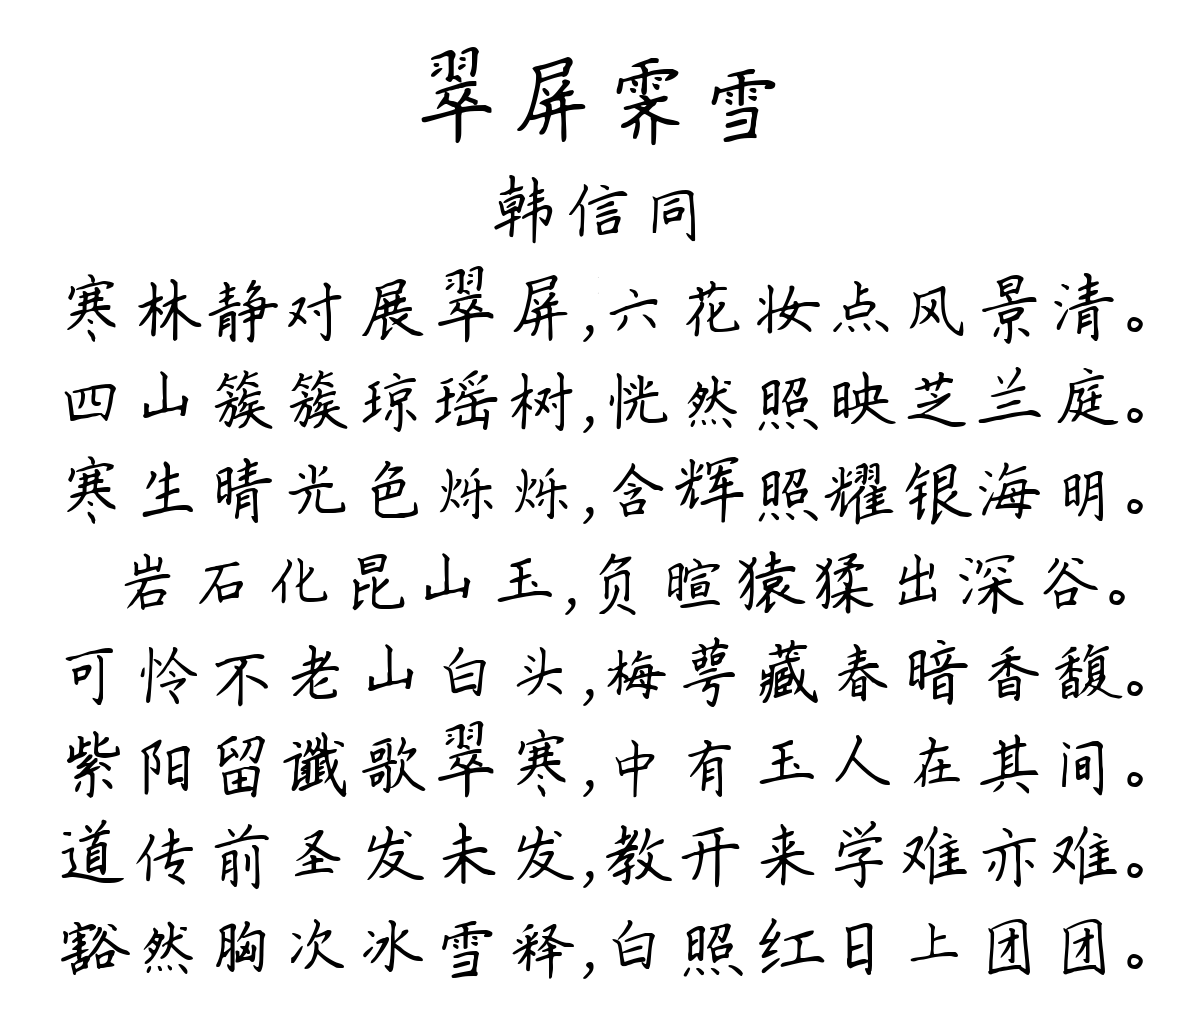 翠屏霁雪
韩信同
寒林静对展翠屏,六花妆点风景清。
四山簇簇琼瑶树,恍然照映芝兰庭。
寒生晴光色烁烁,含辉照耀银海明。
岩石化昆山玉,负暄猿猱出深谷。
可怜不老山白头,梅萼藏春暗香馥。
紫阳留谶歌翠寒,中有玉人在其间。
道传前圣发未发,教开来学难亦难。
豁然胸次冰雪释,白照红日上团团。